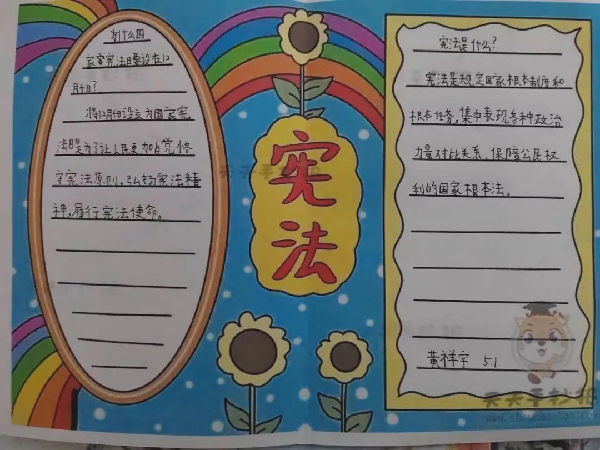 为什么国
家宪法日要设在12
月4日?
将12月4日设立为国家宪
法日是为了让人民更加自觉恪
守宪法原则,弘扬宪法精
神,履行宪法使命。
宪法
宪法是什么?
宪法是规定国家根本制度和
根本任务,集中表现各种政治
力量对比关系、保障公民权
利的国家根本法。
黄祥宇 5.1
天天手抄报